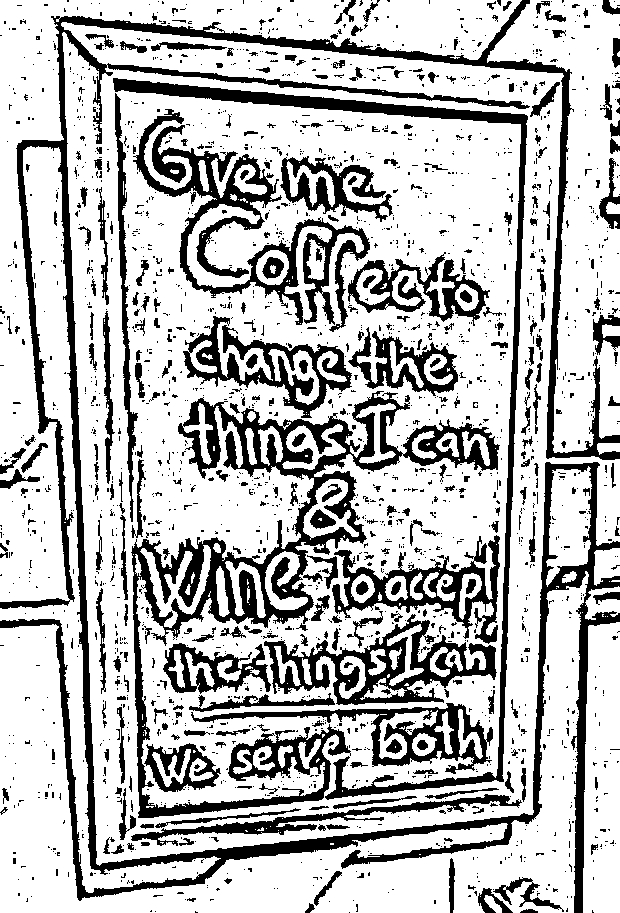 Give me
Coffee to
change the
things I can
&
Wine to accept
the things I can'
We serve both